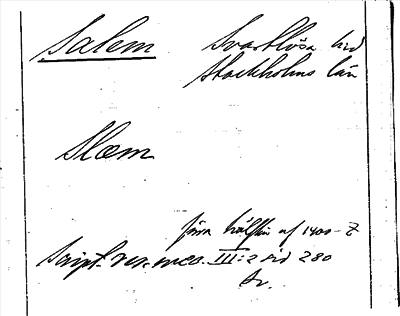 Salem Svartlösa hd
Stockholms län
Slæm
förra hälften af 1400-t
Script. rer. svec. III:2 sid 280
Av.